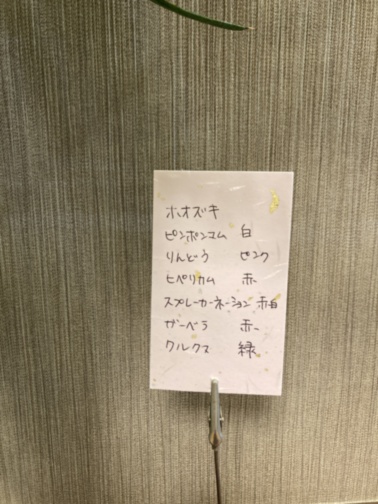 ホオズキ
ピンポンマム 白
りんどう ピンク
ヒペリカム 赤
スプレーカーネーション 赤白
ガーベラ 赤
クルクマ 緑